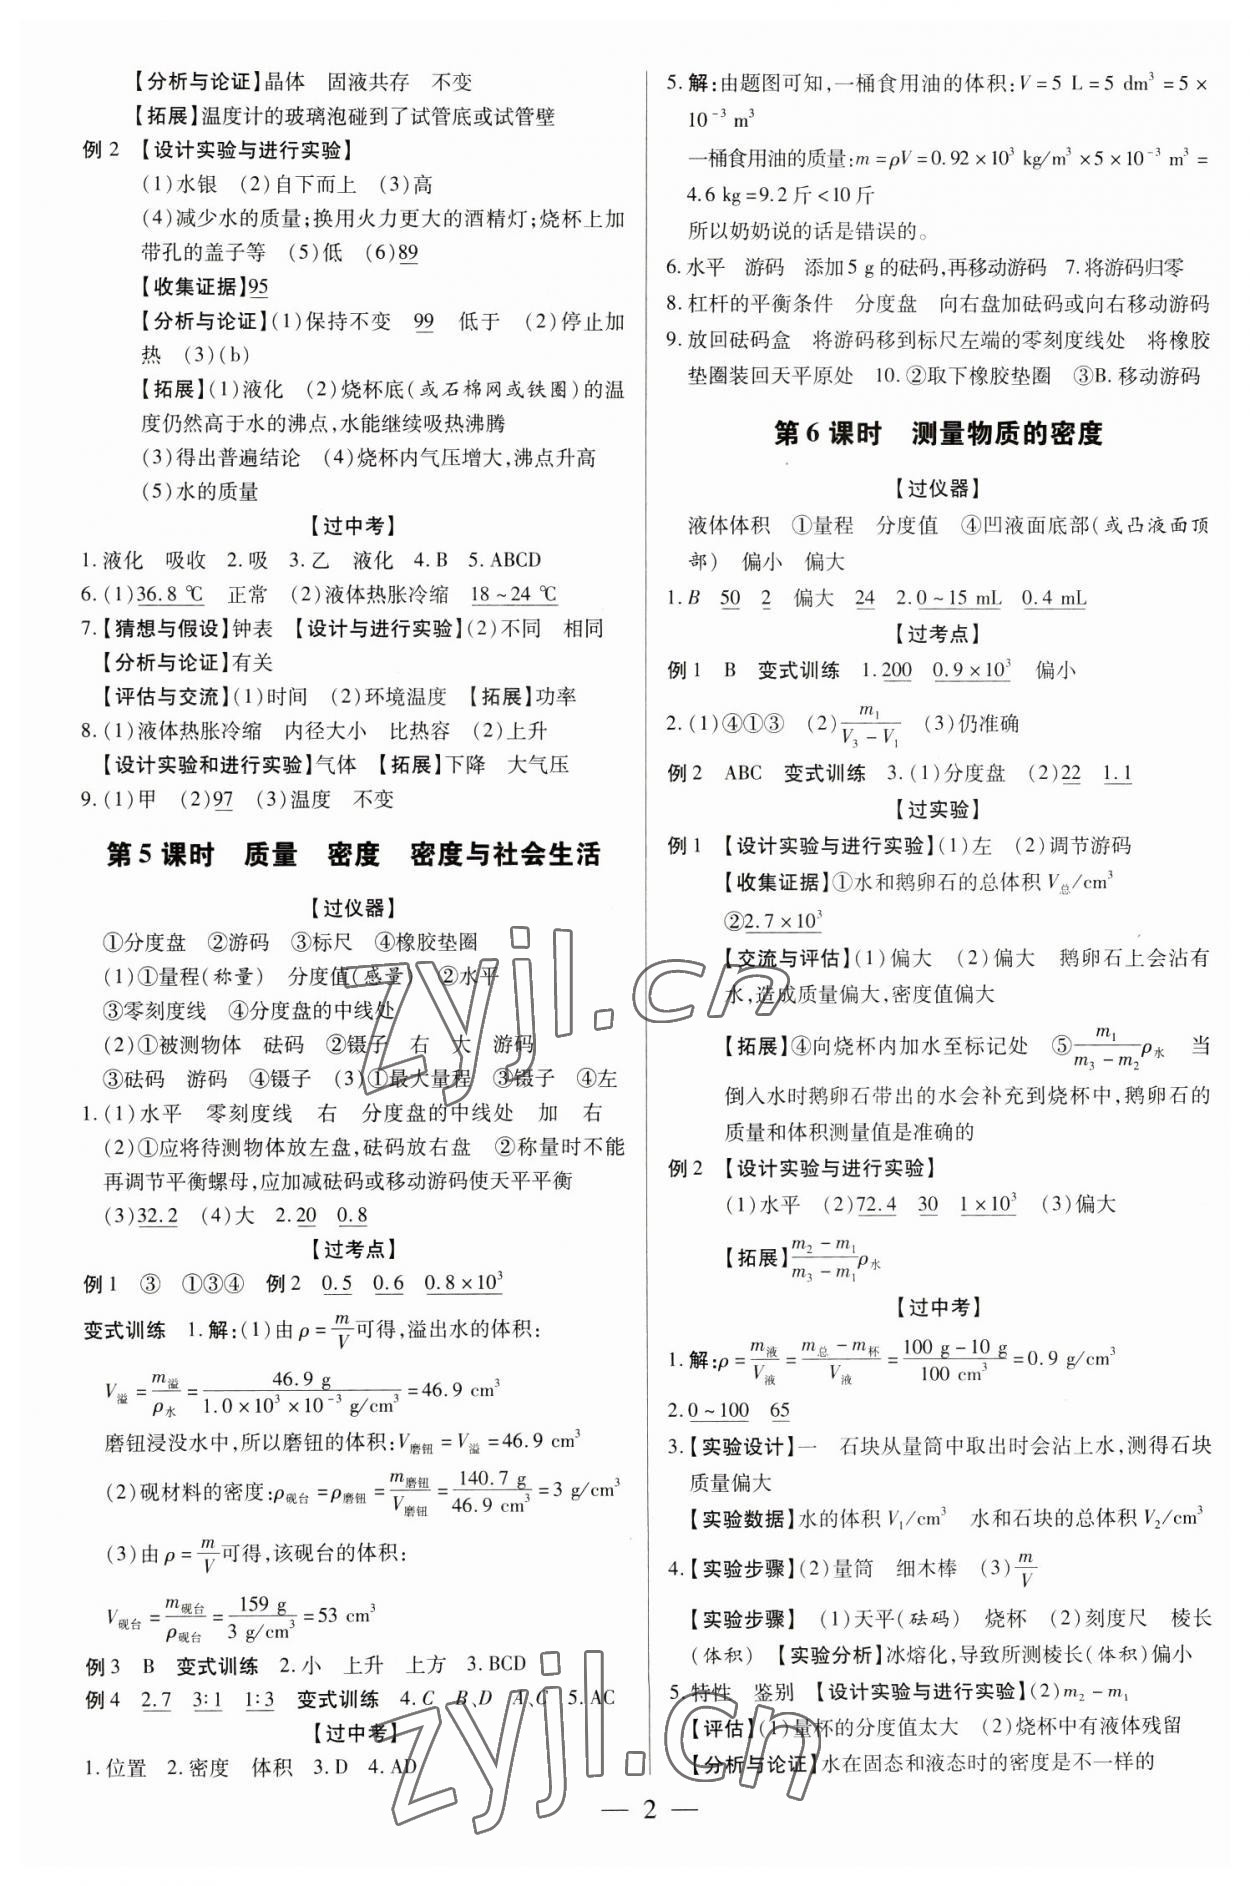 【分析与论证】晶体　固液共存　不变
【拓展】温度计的玻璃泡碰到了试管底或试管壁
例 2　【设计实验与进行实验】
(1)水银　(2)自下而上　(3)高
(4)减少水的质量;换用火力更大的酒精灯;烧杯上加
带孔的盖子等　(5)低　(6)89
【收集证据】95
【分析与论证】(1)保持不变　99　低于　(2)停止加
热　(3)(b)
【拓展】(1)液化　(2)烧杯底(或石棉网或铁圈)的温
度仍然高于水的沸点,水能继续吸热沸腾
(3)得出普遍结论　(4)烧杯内气压增大,沸点升高
(5)水的质量
【过中考】
1.液化　吸收　2.吸　3.乙　液化　4.B　5.ABCD
6.(1)36.8 ℃　正常　(2)液体热胀冷缩　18~24 ℃
7.【猜想与假设】钟表　【设计与进行实验】(2)不同　相同
【分析与论证】有关
【评估与交流】(1)时间　(2)环境温度　【拓展】功率
8.(1)液体热胀冷缩　内径大小　比热容　(2)上升
【设计实验和进行实验】气体　【拓展】下降　大气压
9.(1)甲　(2)97　(3)温度　不变
第 5 课时　质量　密度　密度与社会生活
【过仪器】
①分度盘　②游码　③标尺　④橡胶垫圈
(1)①量程(称量)　分度值(感量)　②水平
③零刻度线　④分度盘的中线处
(2)①被测物体　砝码　②镊子　右　大　游码
③砝码　游码　④镊子　(3)①最大量程　③镊子　④左
1.(1)水平　零刻度线　右　分度盘的中线处　加　右
(2)①应将待测物体放左盘,砝码放右盘　②称量时不能
再调节平衡螺母,应加减砝码或移动游码使天平平衡
(3)32.2　(4)大　2.20　0.8
【过考点】
例 1　③　①③④　例 2　0.5　0.6　0.8×10³
变式训练　1.解:(1)由 ρ=m/V可得,溢出水的体积:
V溢=m溢/ρ水=46.9 g/1.0×10³×10⁻³ g/cm³=46.9 cm³
磨钮浸没水中,所以磨钮的体积:V磨钮=V溢=46.9 cm³
(2)砚材料的密度:ρ砚台=ρ磨钮=m磨钮/V磨钮=140.7 g/46.9 cm³=3 g/cm³
(3)由 ρ=m/V可得,该砚台的体积:
V砚台=m砚台/ρ砚台=159 g/3 g/cm³=53 cm³
例 3　B　变式训练　2.小　上升　上方　3.BCD
例 4　2.7　3∶1　1∶3　变式训练　4.C　B、D　A、C　5.AC
【过中考】
1.位置　2.密度　体积　3.D　4.AD
5.解:由题图可知,一桶食用油的体积:V=5 L=5 dm³=5×
10⁻³ m³
一桶食用油的质量:m=ρV=0.92×10³ kg/m³×5×10⁻³ m³=
4.6 kg=9.2 斤<10 斤
所以奶奶说的话是错误的。
6.水平　游码　添加 5 g 的砝码,再移动游码　7.将游码归零
8.杠杆的平衡条件　分度盘　向右盘加砝码或向右移动游码
9.放回砝码盒　将游码移到标尺左端的零刻度线处　将橡胶
垫圈装回天平原处　10.②取下橡胶垫圈　③B.移动游码
第 6 课时　测量物质的密度
【过仪器】
液体体积　①量程　分度值　④凹液面底部(或凸液面顶
部)　偏小　偏大
1.B　50　2　偏大　24　2.0~15 mL　0.4 mL
【过考点】
例 1　B　变式训练　1.200　0.9×10³　偏小
2.(1)④①③　(2)m₁/V₃-V₁　(3)仍准确
例 2　ABC　变式训练　3.(1)分度盘　(2)22　1.1
【过实验】
例 1　【设计实验与进行实验】(1)左　(2)调节游码
【收集证据】①水和鹅卵石的总体积 V总/cm³
②2.7×10³
【交流与评估】(1)偏大　(2)偏大　鹅卵石上会沾有
水,造成质量偏大,密度值偏大
【拓展】④向烧杯内加水至标记处　⑤m₁/m₃-m₂ρ水　当
倒入水时鹅卵石带出的水会补充到烧杯中,鹅卵石的
质量和体积测量值是准确的
例 2　【设计实验与进行实验】
(1)水平　(2)72.4　30　1×10³　(3)偏大
【拓展】m₂-m₁/m₃-m₁ρ水
【过中考】
1.解:ρ=m液/V液=m总-m杯/V液=100 g-10 g/100 cm³=0.9 g/cm³
2.0~100　65
3.【实验设计】一　石块从量筒中取出时会沾上水,测得石块
质量偏大
【实验数据】水的体积 V₁/cm³　水和石块的总体积 V₂/cm³
4.【实验步骤】(2)量筒　细木棒　(3)m/V
【实验步骤】(1)天平(砝码)　烧杯　(2)刻度尺　棱长
(体积)　【实验分析】冰熔化,导致所测棱长(体积)偏小
5.特性　鉴别　【设计实验与进行实验】(2)m₂-m₁
【评估】(1)量杯的分度值太大　(2)烧杯中有液体残留
【分析与论证】水在固态和液态时的密度是不一样的
— 2 —
zyjl.cn
zyjl.cn